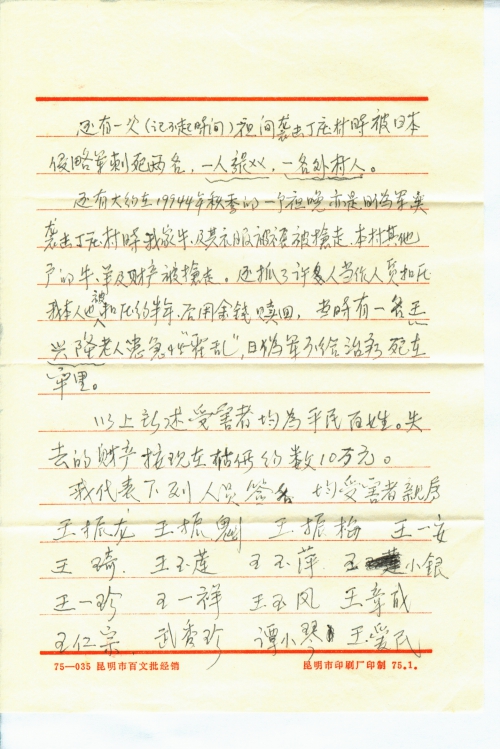 还有一次(记不起时间)夜间袭击丁庄村时被日本
侵略军刺死两名,一人,一名外村人。
还有大约在19944年秋季的一个夜晚亦是日伪军突
袭击丁庄村时我家牛、及其衣服被褥被抢走。本村其他
户的牛、羊及财产被抢走。还抓了许多人当作人质扣压
我本人也被扣压约半年,后用余钱赎回,当时有一名王
兴隆老人患急性“霍乱”,日伪军不给治而死在
牢里。
以上所述受害者均为平民百姓。失
去的财产按现在估价约数10万元。
我代表下列人员签名 均受害者亲属
王振龙 王振魁 王振梅 王一安
王琦 王玉莲 王玉萍 王小银
王一珍 王一祥 王玉凤 王章成
王仁宗 武秀珍 谭小琴 王爱民
75—035 昆明市百文批经销 昆明市印刷厂印制 75.1.